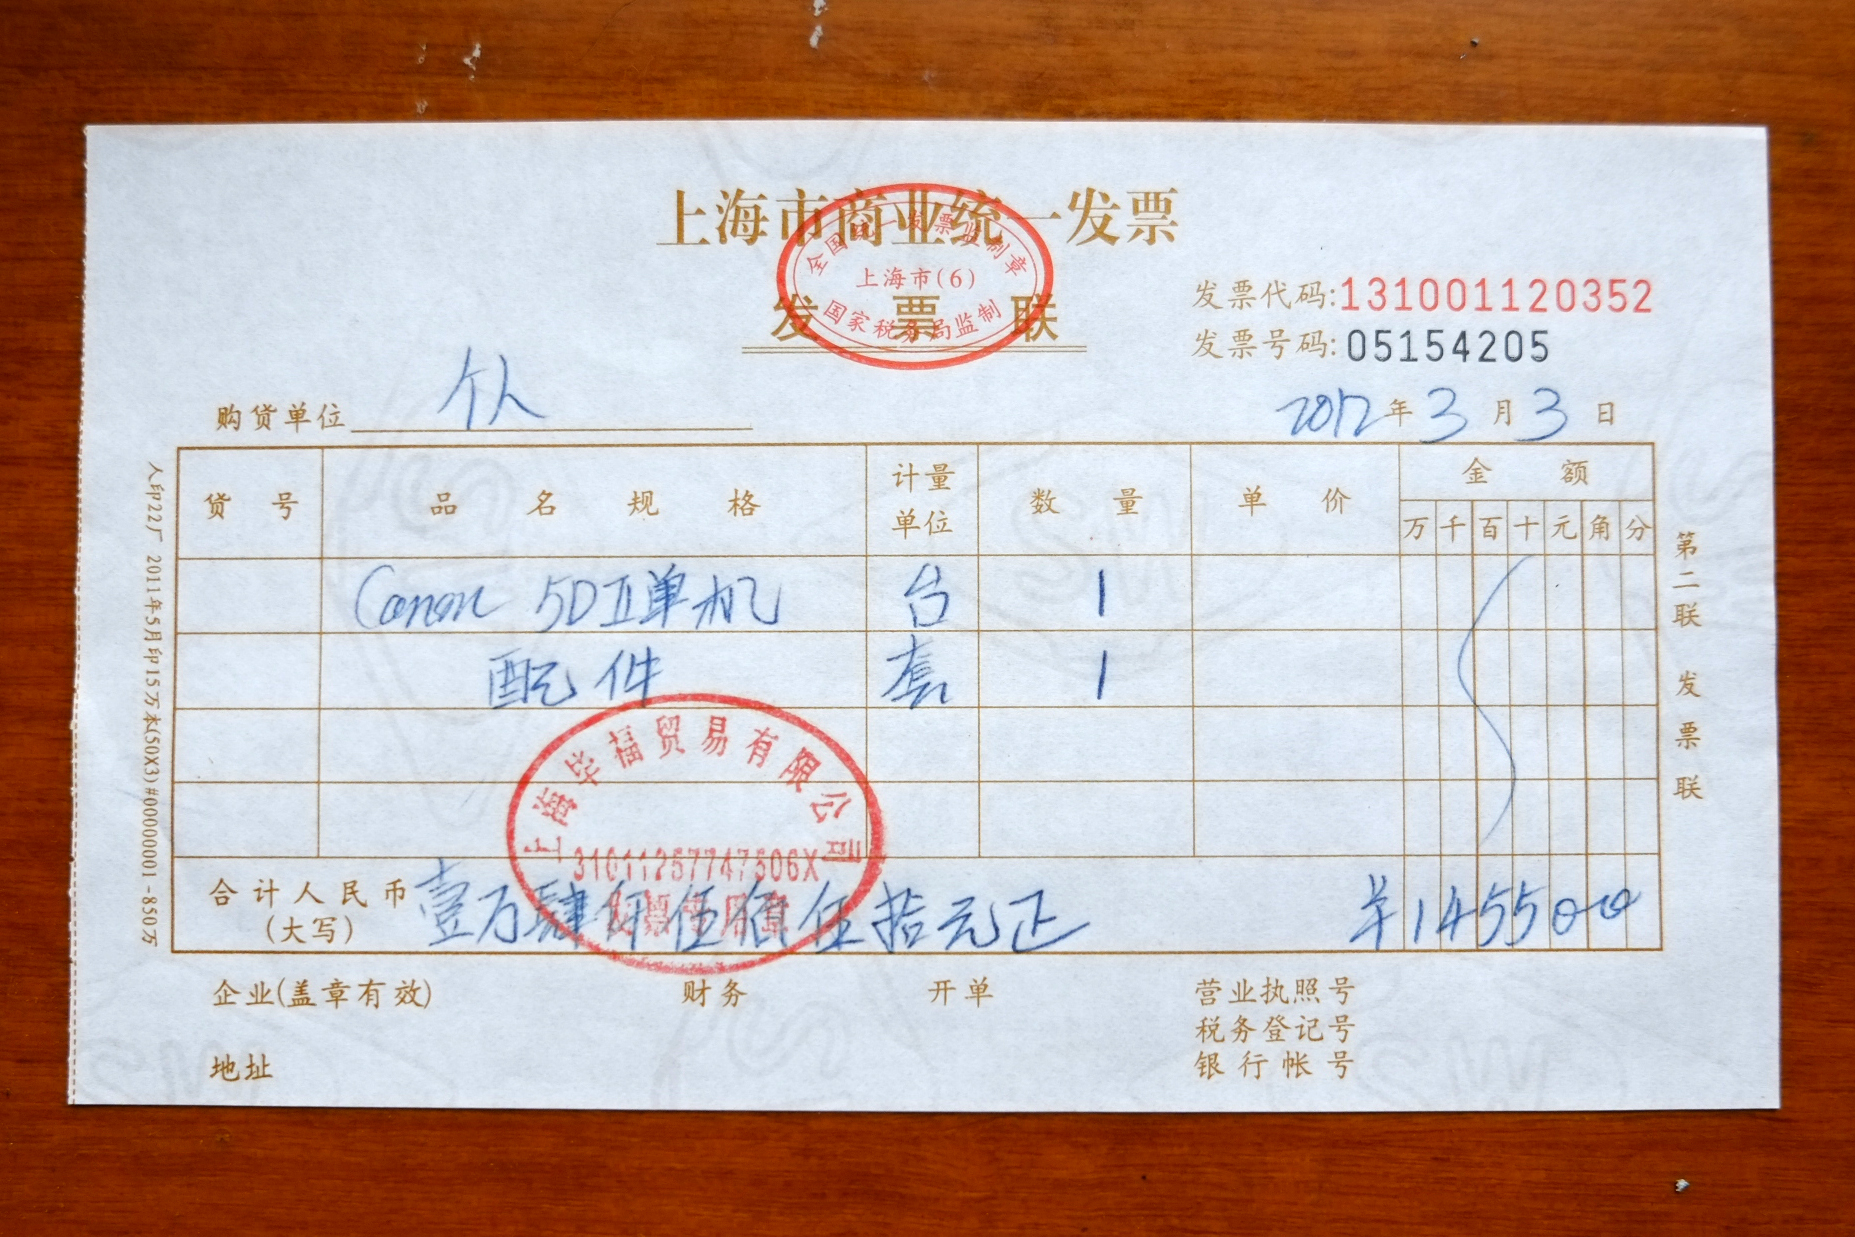 上海市商业统一发票
全国统一发票监制章
上海市(6)
国家税务局监制
发票联
发票代码:131001120352
发票号码:05154205
购货单位 个人
2012年3月3日
货号 品名规格 计量单位 数量 单价 金额
万千百十元角分
Canon 5DⅡ单机 台 1
配件 套 1
上海华福贸易有限公司
31011257747506X
发票专用章
合计人民币(大写) 壹万肆仟伍佰伍拾元正 ¥1455000
企业(盖章有效) 财务 开单 营业执照号
税务登记号
地址 银行帐号
第二联 发票联
人印22厂 2011年5月印15万本(50X3)#00000001-850万